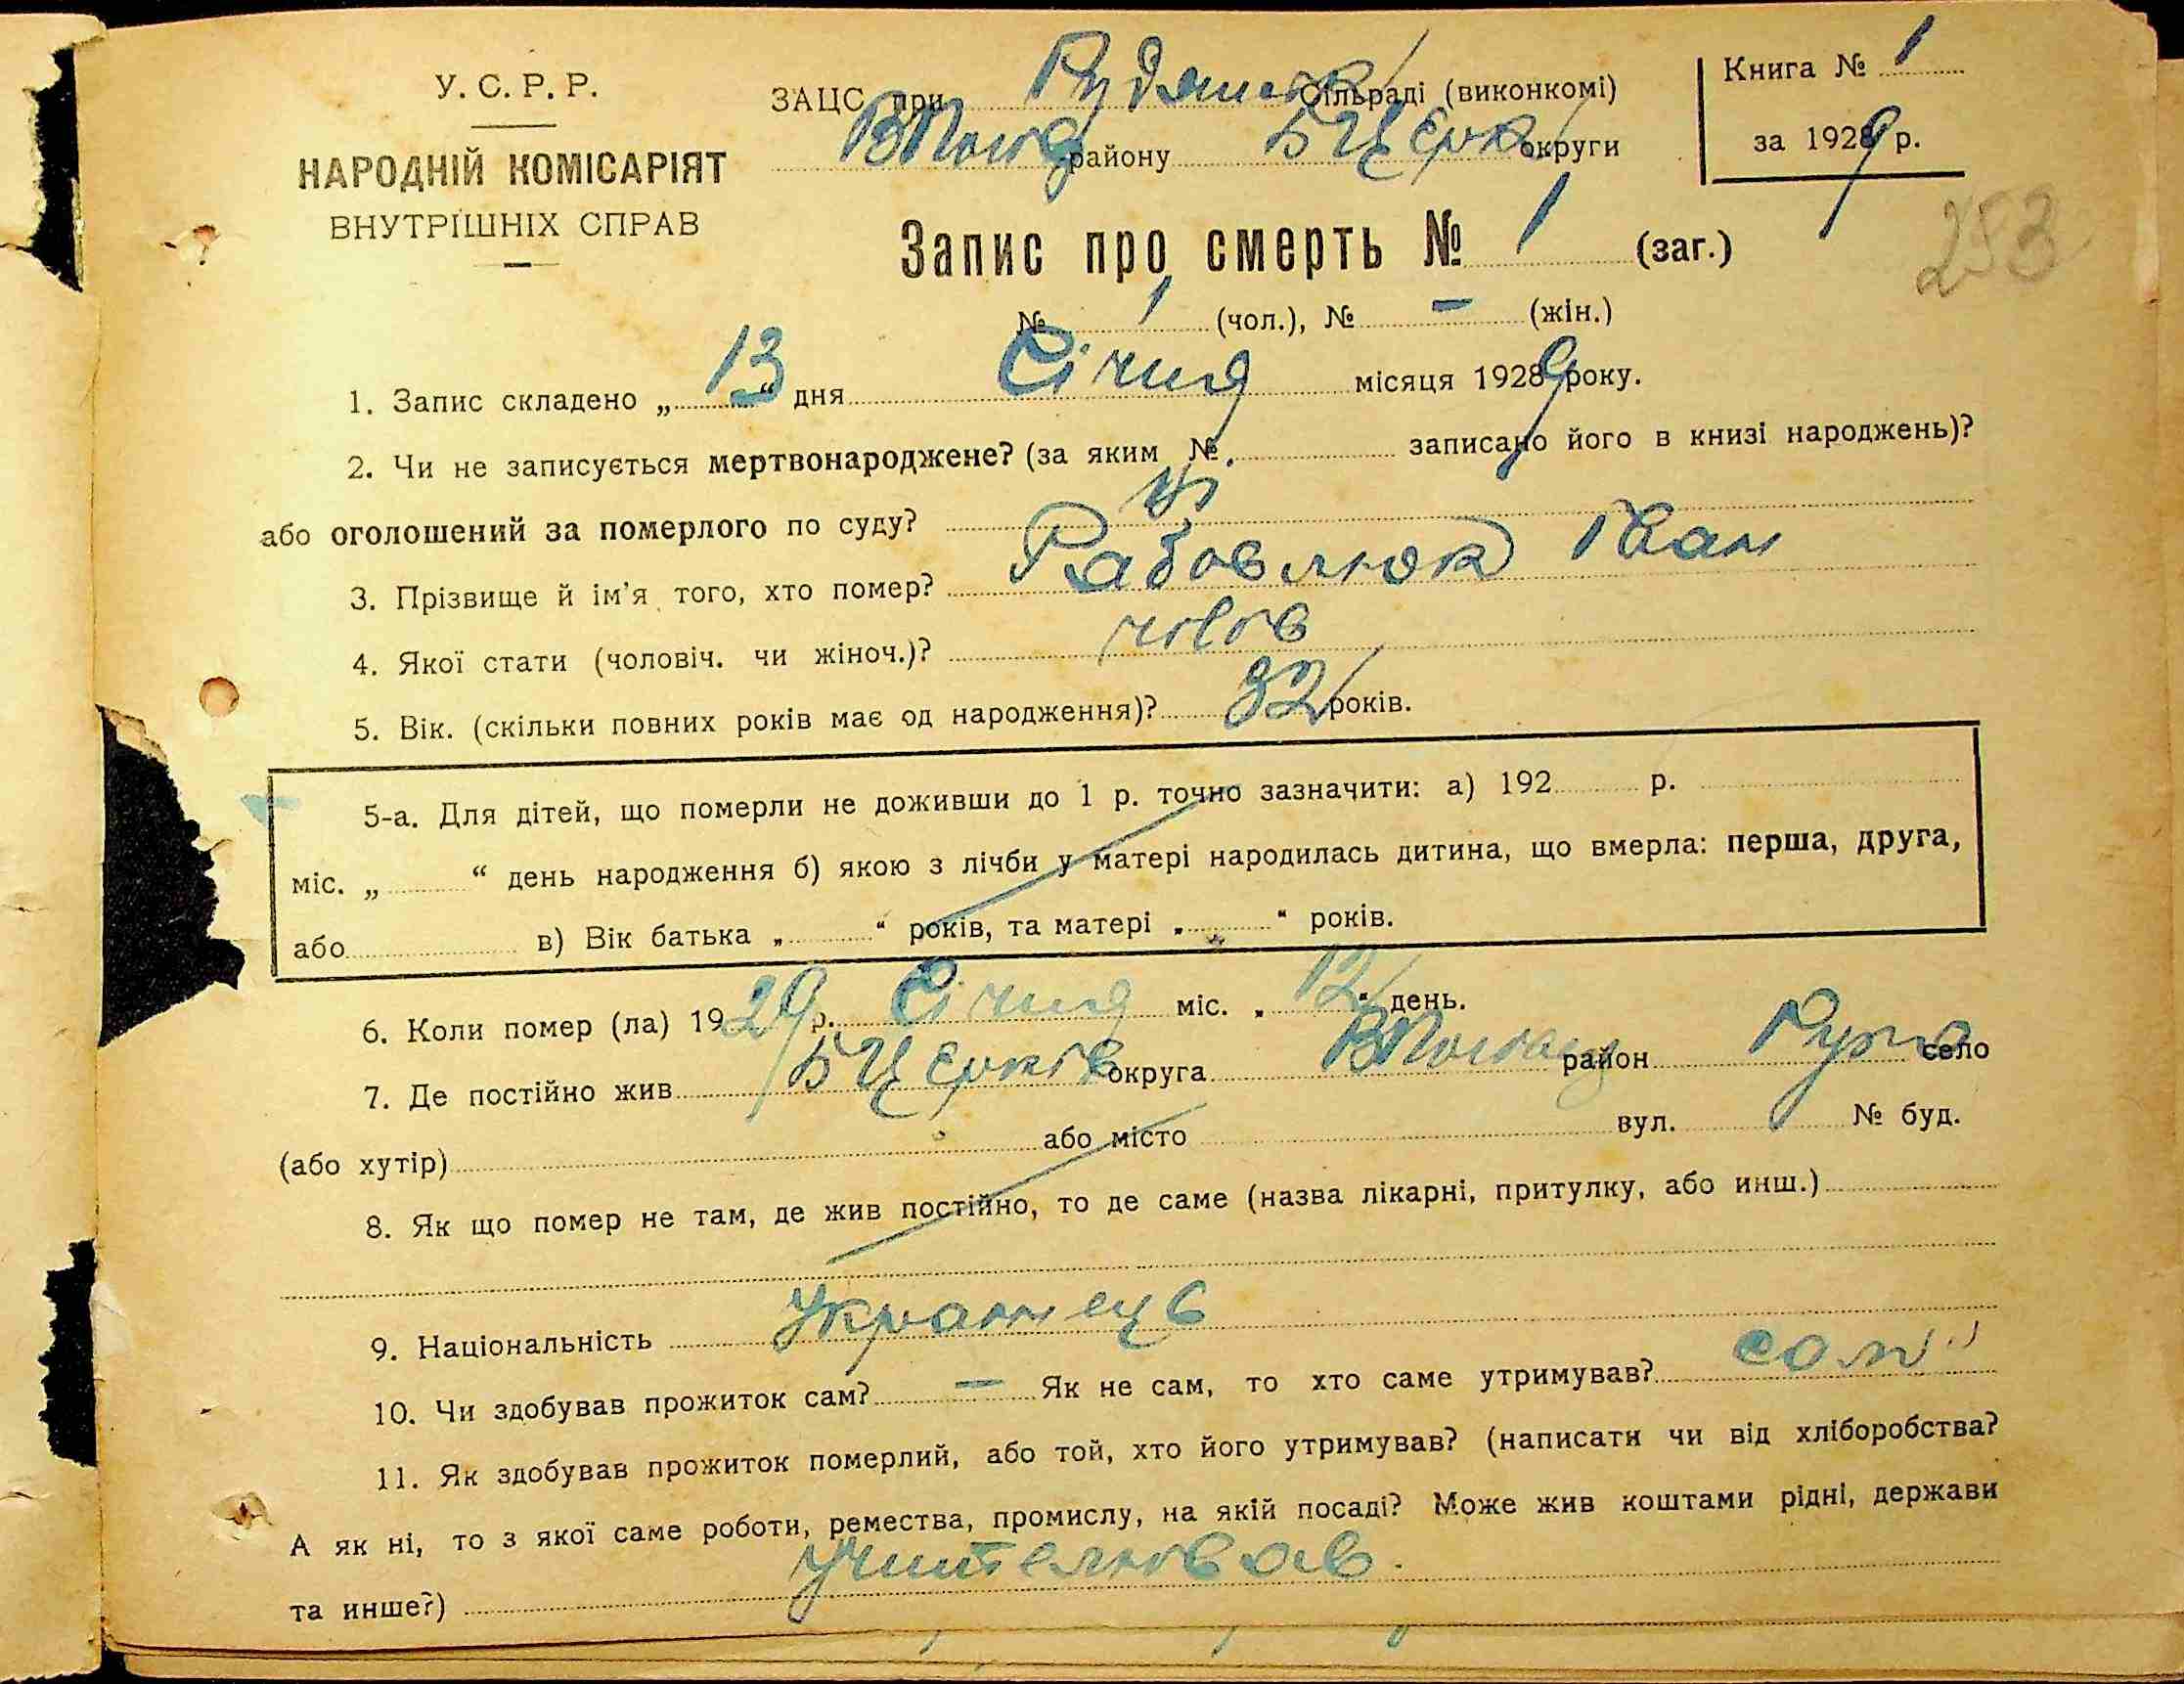 У. С. Р. Р.
НАРОДНІЙ КОМІСАРІЯТ
ВНУТРІШНІХ СПРАВ
ЗАЦС при Рудянськ Сільраді (виконкомі)
району БЦерк округи
Книга № 1
за 1929 р.
253
Запис про смерть № 1 (заг.)
№ 1 (чол.), № — (жін.)
1. Запис складено „13“ дня Січня місяця 1929 року.
2. Чи не записується мертвонароджене? (за яким № записано його в книзі народжень)?
або оголошений за померлого по суду?
3. Прізвище й ім'я того, хто помер? Рабовлюк Іван
4. Якої стати (чоловіч. чи жіноч.)? чолов
5. Вік. (скільки повних років має од народження)? 32 років.
5-а. Для дітей, що померли не доживши до 1 р. точно зазначити: а) 192 р.
міс. „ “ день народження б) якою з лічби у матері народилась дитина, що вмерла: перша, друга,
або в) Вік батька „ “ років, та матері „ “ років.
6. Коли помер (ла) 1929 р. Січня міс. „12“ день.
7. Де постійно жив БЦерків округа район село
(або хутір) або місто вул. № буд.
8. Як що помер не там, де жив постійно, то де саме (назва лікарні, притулку, або инш.)
9. Національність Українець
10. Чи здобував прожиток сам? — Як не сам, то хто саме утримував? сам
11. Як здобував прожиток померлий, або той, хто його утримував? (написати чи від хліборобства?
А як ні, то з якої саме роботи, ремества, промислу, на якій посаді? Може жив коштами рідні, держави
та инше?) учителював.